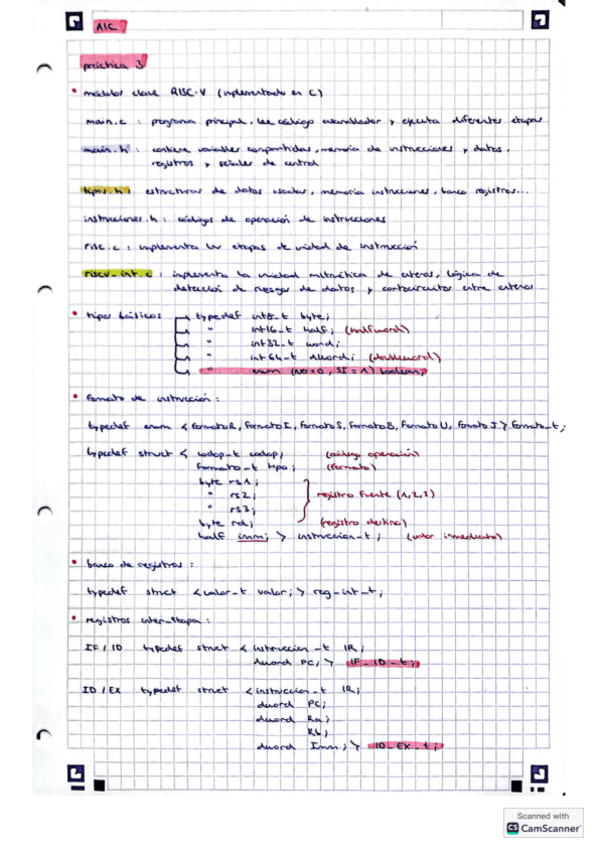 AIC
práctica 3
• módulos clave RISC-V (implementado en C)
main.c : programa principal, lee código ensamblador y ejecuta diferentes etapas
main.h : contiene variables compartidas, memoria de instrucciones y datos,
registros y señales de control
tipos.h : estructuras de datos usadas, memoria instrucciones, banco registros...
instrucciones.h : códigos de operación de instrucciones
risc.c : implementa las etapas de unidad de instrucción
riscv_int.c : implementa la unidad aritmética de enteros, lógica de
detección de riesgos de datos y cortocircuitos entre enteros
• tipos básicos typedef int8_t byte;
" int16_t half; (halfword)
" int32_t word;
" int64_t dword; (doubleword)
" enum (NO=0, SI=1) boolean;
• formato de instrucción :
typedef enum < FormatoR, FormatoI, FormatoS, FormatoB, FormatoU, FormatoJ > formato_t;
typedef struct < codop_t codop; (código operación)
formato_t tipo; (formato)
byte rs1;
" rs2; registro fuente (1,2,3)
" rs3;
byte rd; (registro destino)
half imm; > instruccion_t; (valor inmediato)
• banco de registros :
typedef struct < valor_t valor; > reg_int_t;
• registros inter_etapa :
IF / ID typedef struct < instruccion_t IR;
dword PC; > IF_ID_t;
ID / EX typedef struct < instruccion_t IR;
dword PC;
dword Ra;
Rb;
dword Imm; > ID_EX_t;
Scanned with
CS CamScanner